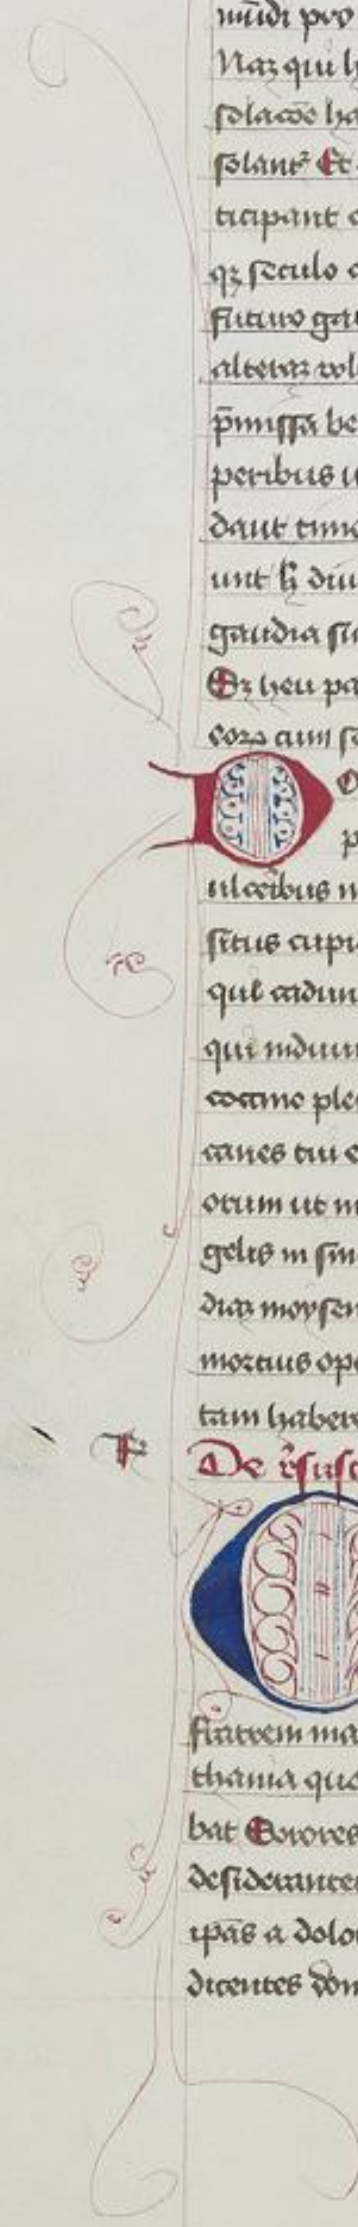 mūdi pro
Naz qui h
solacōe ha
solant² Et
ticipant
qꝫ seculo
futuro gau
alteraz vol
p̄missa be
peribus
daut time
unt h̄ diu
gaudia sic
Oꝫ heu pa
cora cum se
O
p
ulceribus
situs cupi
que cadun
qui induu
coccino ple
canes tui
orum ut m
gelis in sin
diaz moysen
mortuus ope
tam haber
De r̄susc
fratrem ma
thania qua
bat Sorores
desiderantes
ipās a dolo
dicentes dom